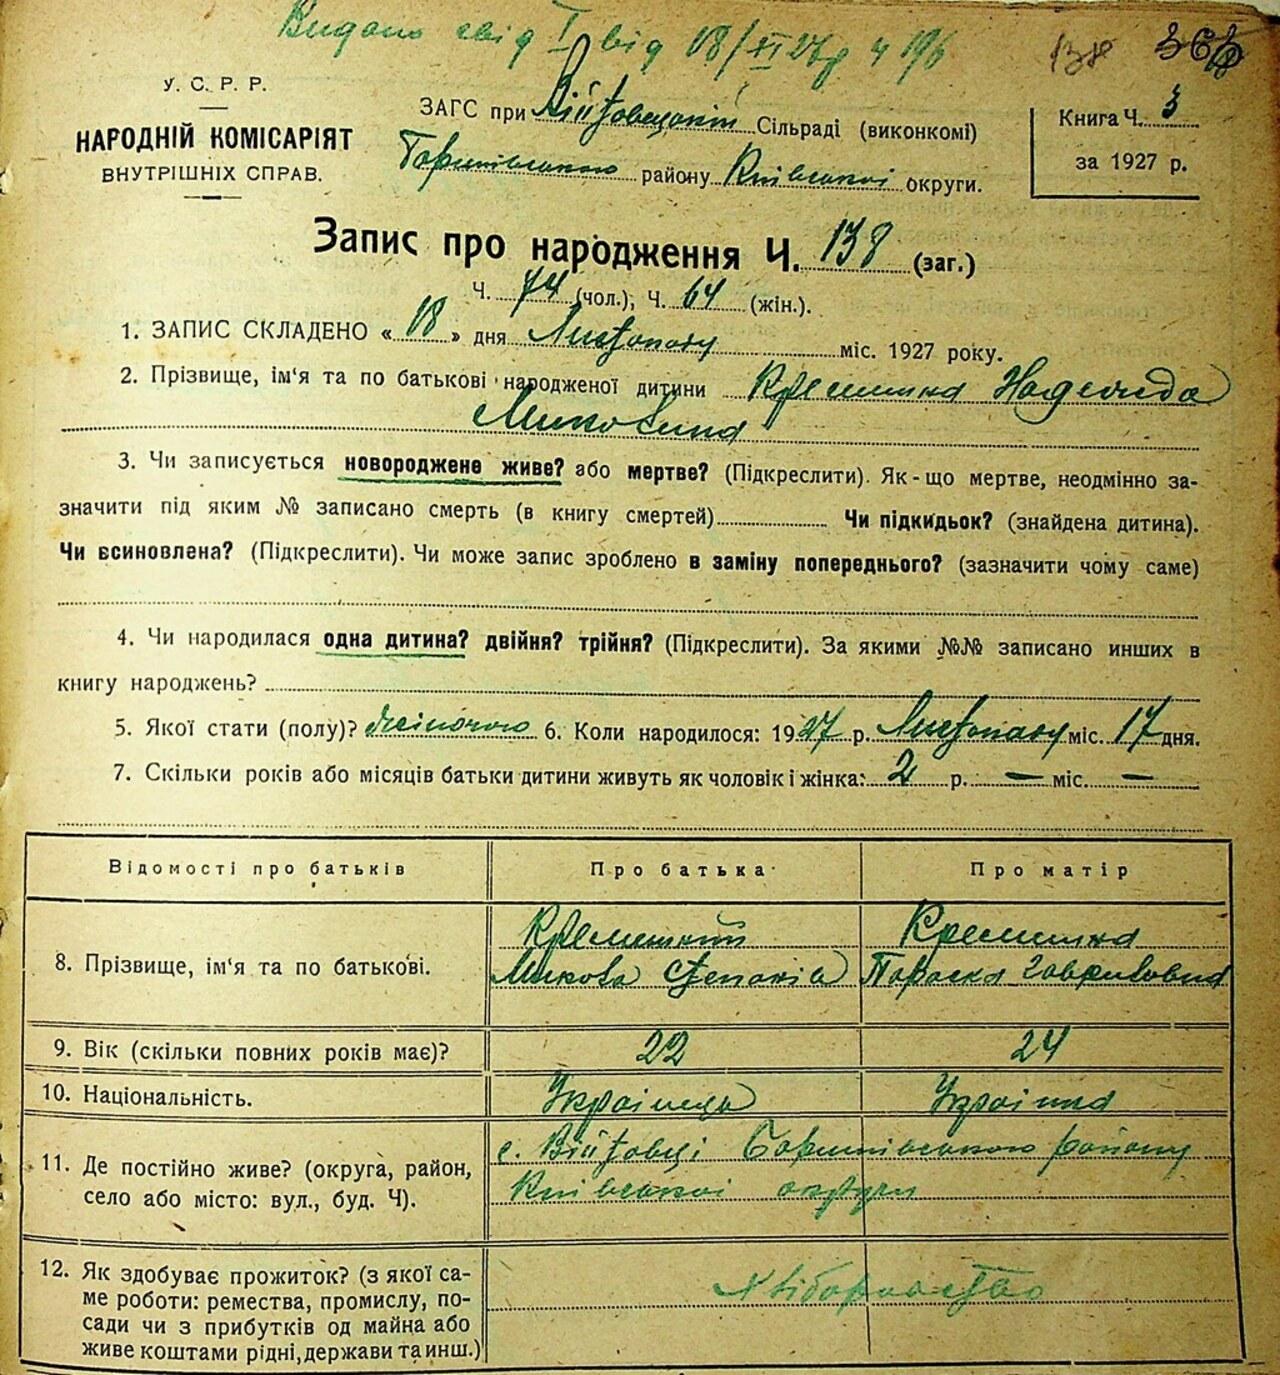 Видано свід I від 18/XI 27р ч 196
138
У. С. Р. Р.
НАРОДНІЙ КОМІСАРІЯТ
ВНУТРІШНІХ СПРАВ.
ЗАГС при Війтовецькій Сільраді (виконкомі)
Баришівського району Київської округи.
Книга Ч. 3
за 1927 р.
Запис про народження Ч. 138 (заг.)
Ч. 74 (чол.), Ч. 64 (жін.).
1. ЗАПИС СКЛАДЕНО «18» дня Листопаду міс. 1927 року.
2. Прізвище, ім'я та по батькові народженої дитини Надежда
3. Чи записується новороджене живе? або мертве? (Підкреслити). Як-що мертве, неодмінно за-
значити під яким № записано смерть (в книгу смертей) Чи підкидьок? (знайдена дитина).
Чи всиновлена? (Підкреслити). Чи може запис зроблено в заміну попереднього? (зазначити чому саме)
4. Чи народилася одна дитина? двійня? трійня? (Підкреслити). За якими №№ записано инших в
книгу народжень?
5. Якої стати (полу)? жіночого 6. Коли народилося: 1927 р. Листопаду міс. 17 дня.
7. Скільки років або місяців батьки дитини живуть як чоловік і жінка: 2 р. — міс. —
Відомості про батьків
Про батька
Про матір
8. Прізвище, ім'я та по батькові.
Микола Степанів
Параска Гавриловна
9. Вік (скільки повних років має)?
22
24
10. Національність.
Українець
11. Де постійно живе? (округа, район,
село або місто: вул., буд. Ч).
с. Війтовці Баришівського району
Київської округи
12. Як здобуває прожиток? (з якої са-
ме роботи: ремества, промислу, по-
сади чи з прибутків од майна або
живе коштами рідні, держави та инш.)
Хліборобство